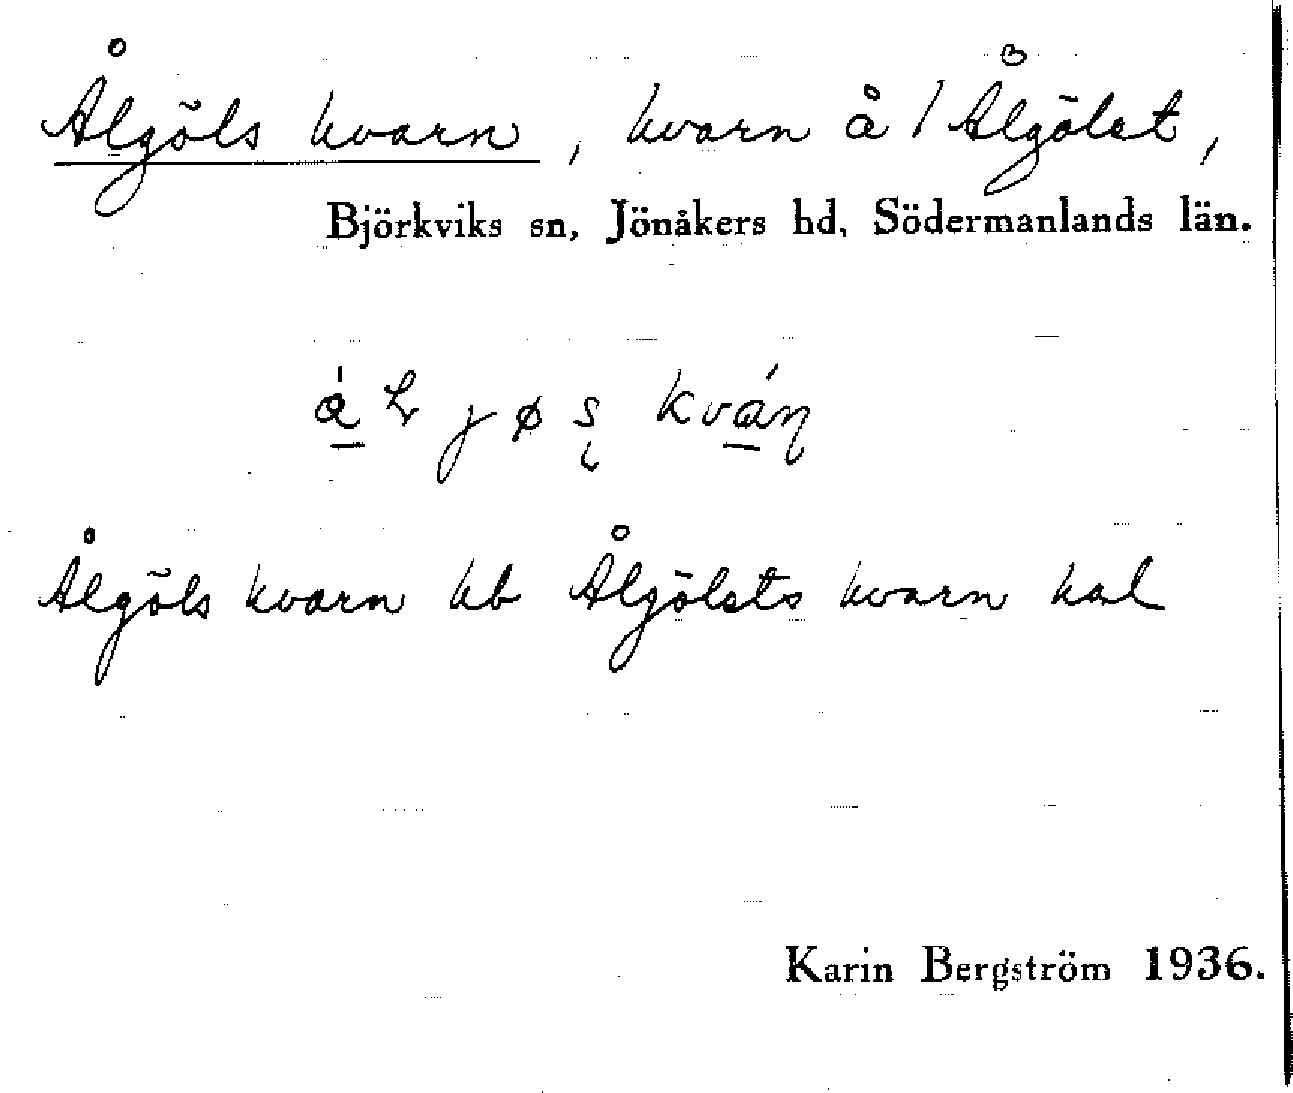 Ålgöls kvarn, kvarn å / Ålgölet,
Björkviks sn, Jönåkers hd, Södermanlands län.
Ålgöls kvarn kb Ålgölets kvarn kal
Karin Bergström 1936.